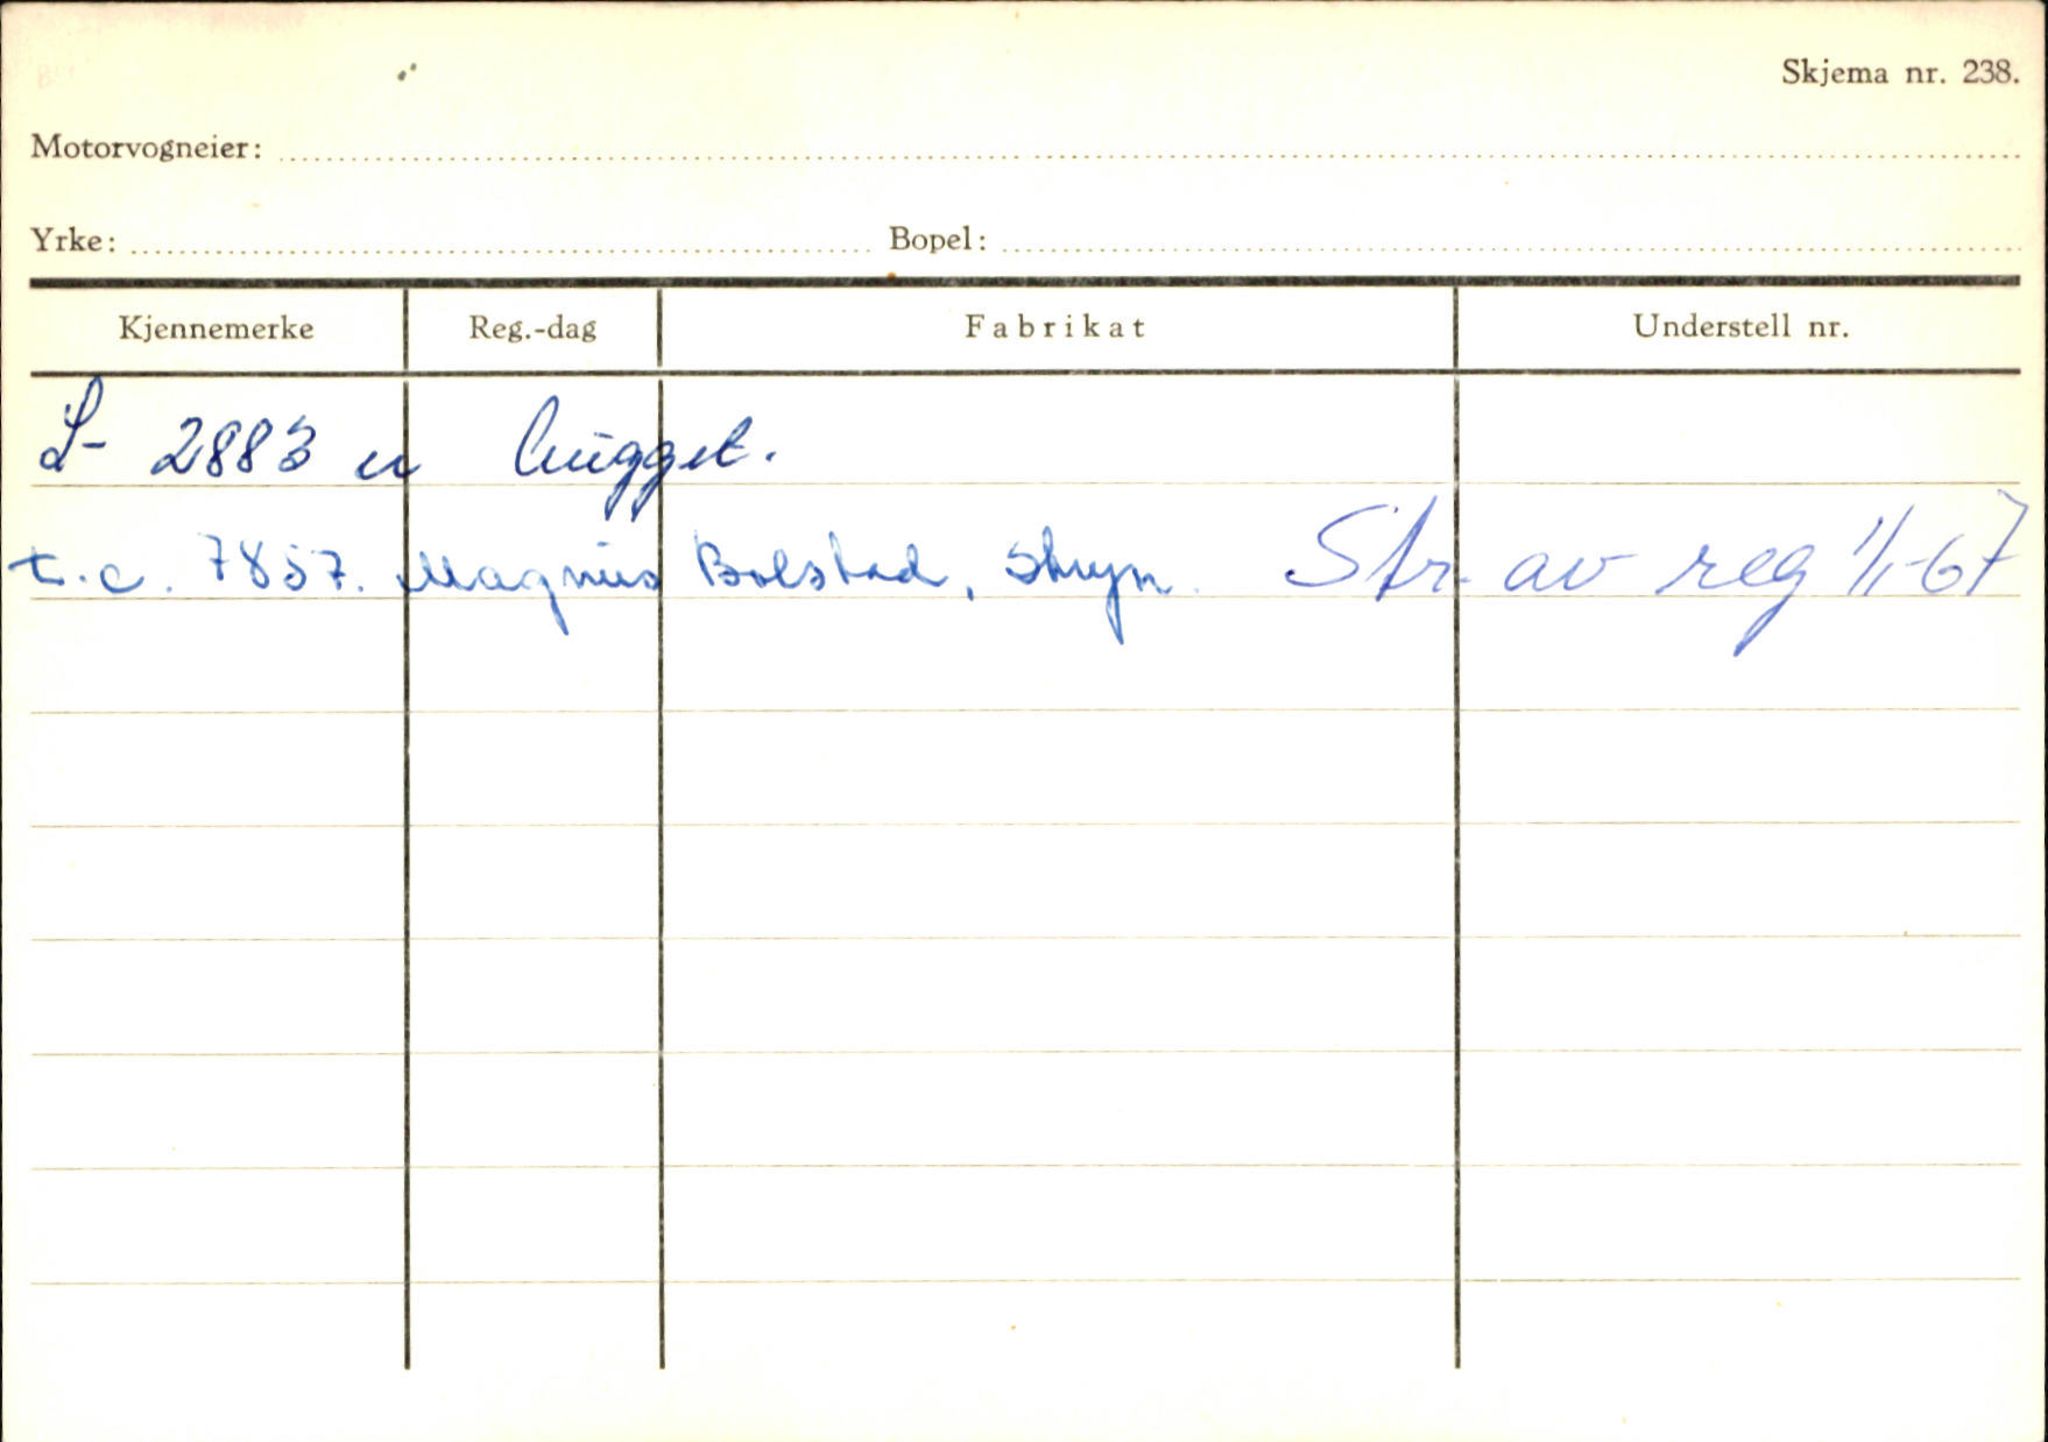 Skjema nr. 238.
Motorvogneier:
Yrke: Bopel:
Kjennemerke Reg.-dag Fabrikat Understell nr.
S- 2883 er hugget.
t.c. 7857. Magnus Bolstad, Stryn. Str. av reg 1/1-67